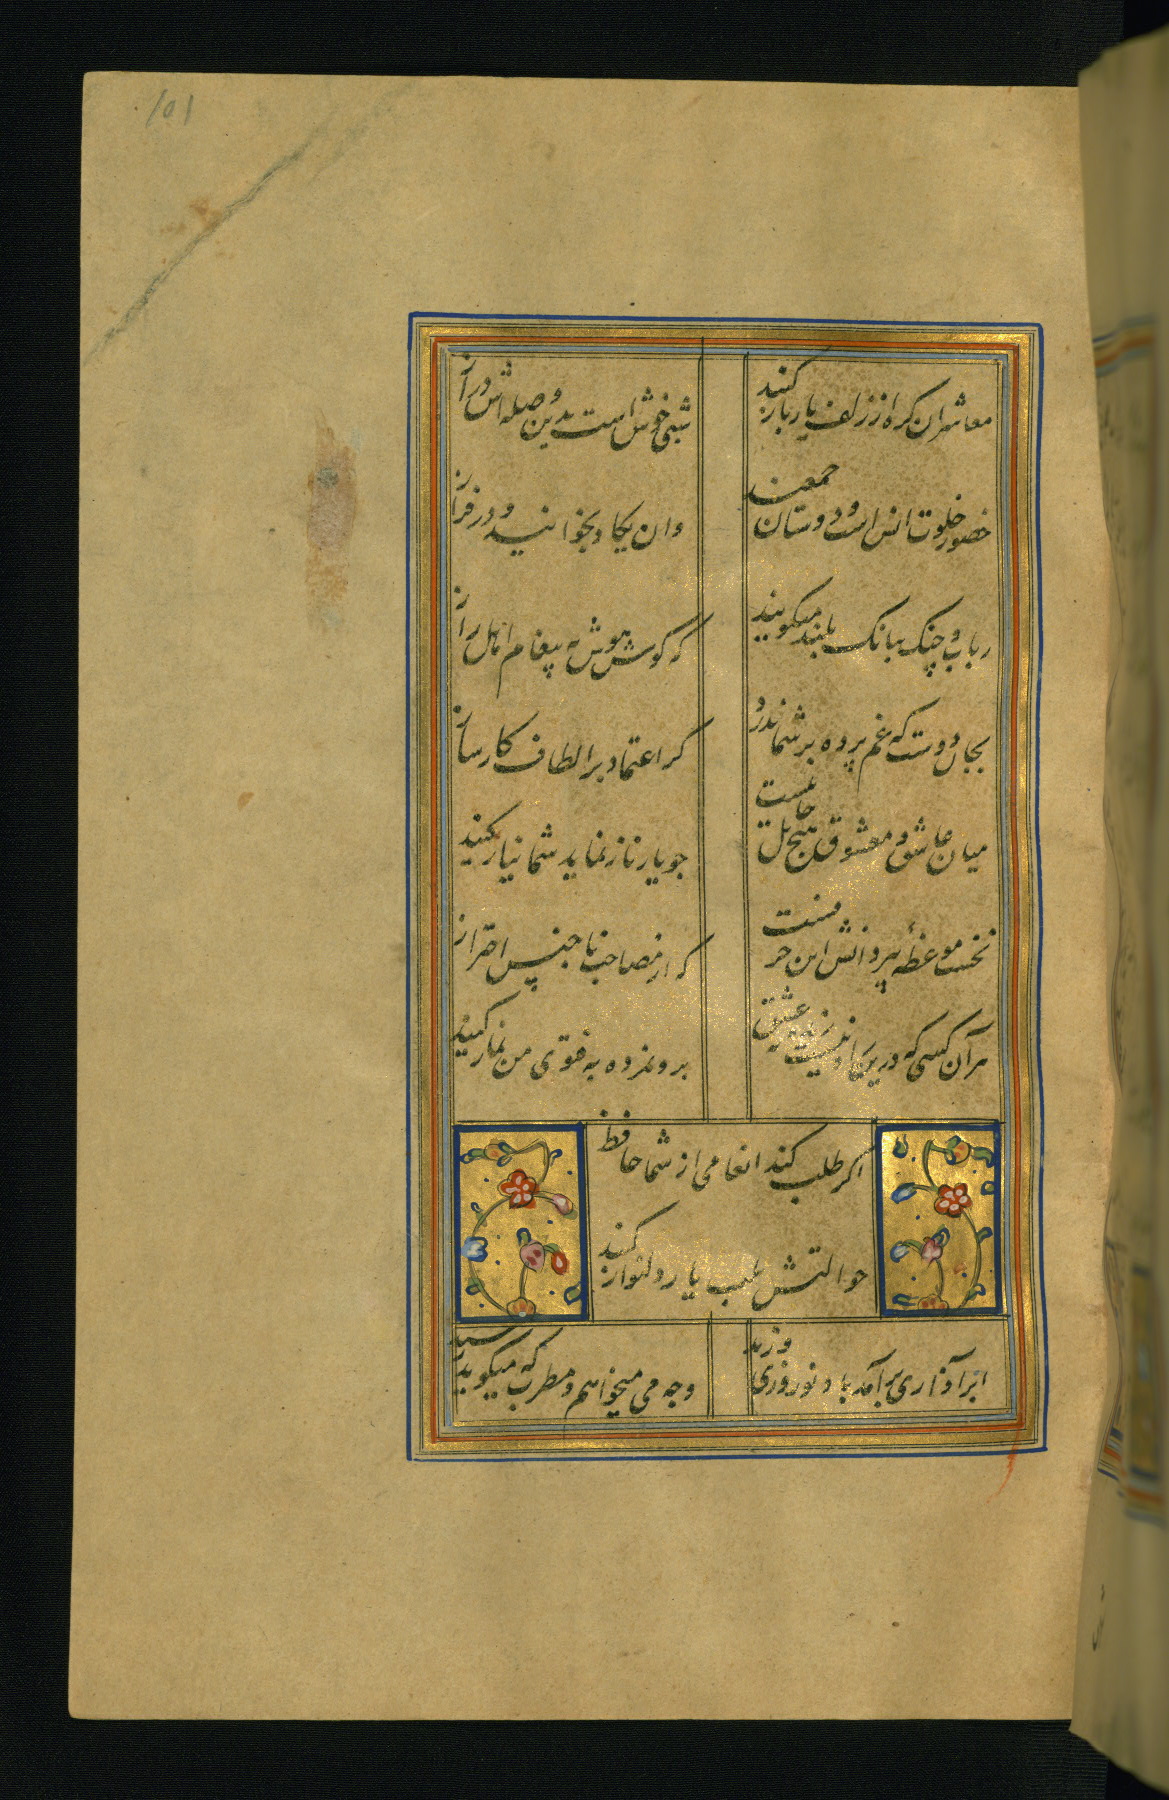 101
معاشران کره از زلف یار باز کنید
شبی خوش است بدین وصله اش دراز
حضور خلوت انس است و دوستان جمعند
وان یکاد بخوانید و در فراز
رباب و چنک ببانک بلند میکویند
که کوش هوش به پیغام اهل راز
بجان دوست که غم پرده بر شما ندرد
کر اعتماد بر الطاف کارساز
میان عاشق و معشوق هیچ حایل نیست
چو یار ناز نماید شما نیاز کنید
نخست موعظه پیر دانش این حرفست
که از مصاحب ناجنس احتراز
هر آن کسی که درین نیست زنده عشق
برو نمرده به فتوی من نماز کنید
اکر طلب کند انعامی از شما حافظ
حوالتش بلب یار دلنواز کنید
ابر آذاری برآمد باد نوروزی وزید
وجه می میخواهم و مطرب که میکوید رسید